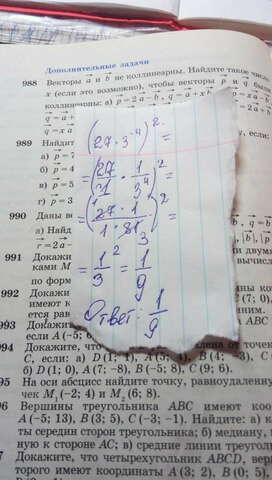 Дополнительные задачи
988 Векторы a и b не коллинеарны. Найдите такое число
x (если это возможно), чтобы векторы p и q были
коллинеарны: а) p = 2a − b, q = a + xb
989 Найдит
а) p = 7
б) p = 4
в) p = 5
г) p = 3
990 Даны ве
а) Найд
r = 2a −
991 Докажи
ками M
по форм
992 Докажи
993 Докажи
если A (−5;
994 Докажи
C, если: а) D (1; 1), A (5; 4), B (4; −3), C
б) D (1; 0), A (7; −8), B (−5; 8), C (9; 6).
995 На оси абсцисс найдите точку, равноудаленну
чек M₁ (−2; 4) и M₂ (6; 8).
96 Вершины треугольника ABC имеют коо
A (−5; 13), B (3; 5), C (−3; −1). Найдите: а) к
ты середин сторон треугольника; б) медиану,
ную к стороне AC; в) средние линии треуголь
7 Докажите, что четырехугольник ABCD, вер
торого имеют координаты A (3; 2), B (0; 5),
(27·3⁻⁴)² =
= (27/1 · 1/3⁴)² =
= (27·1/1·81 3)² =
= 1/3² = 1/9
Ответ: 1/9